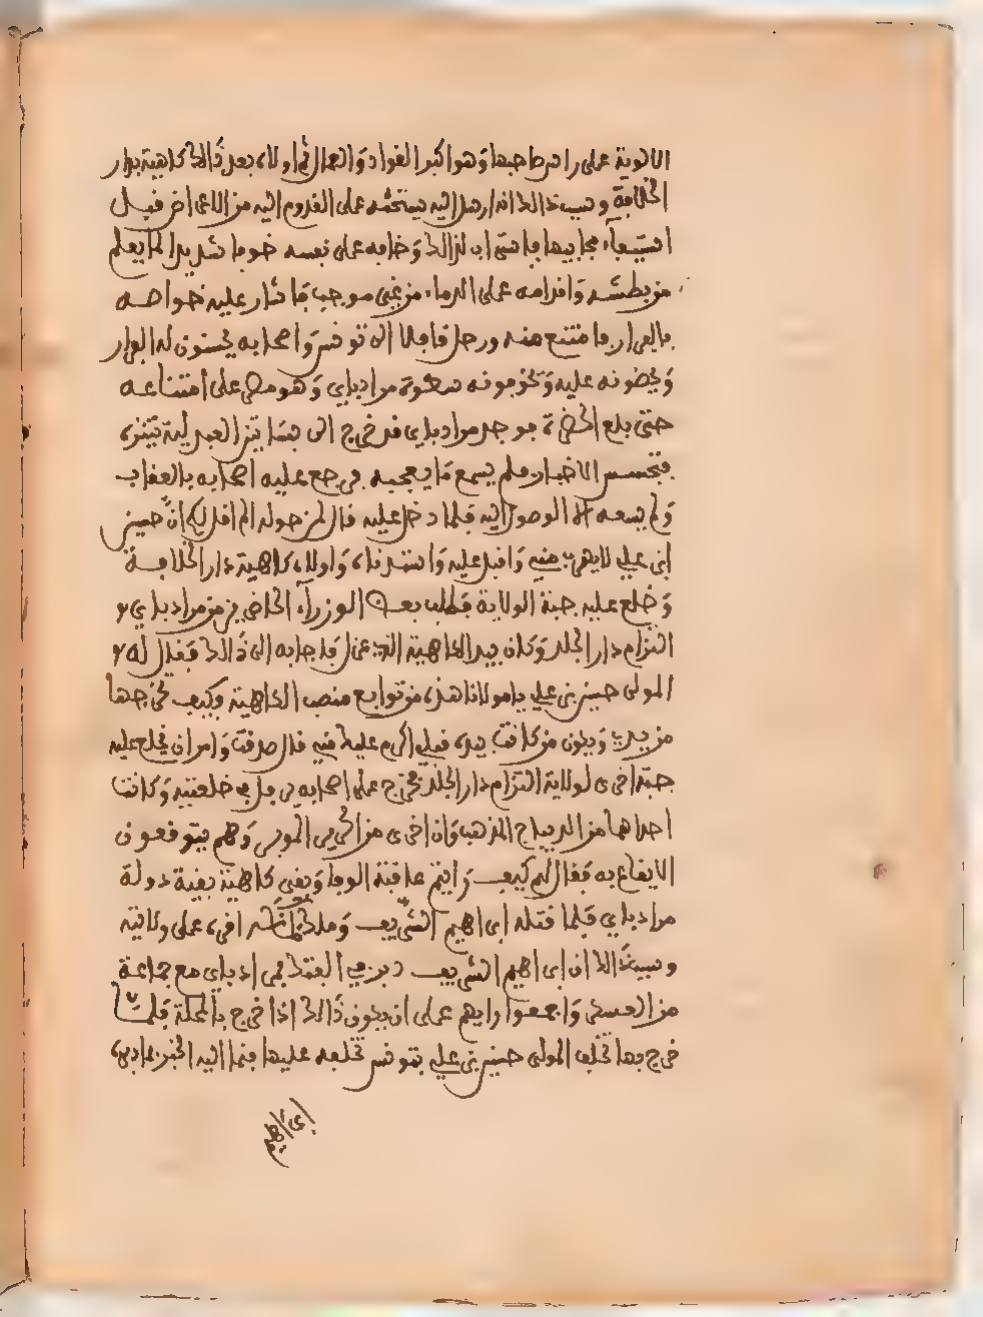 الالوية على راس صاحبها وهو اكبر القواد والعمال ثم اولاه بعد ذالك كاهية بدار
الخلافة وسبب ذالك انه ارسل اليه يستحثه على القدوم اليه من الاعراض قبل
استيفاء مجابيها فاستراب لذالك وخافه على نفسه خوفا شديدا لما يعلم
من بطشه واقدامه على الدماء من غير موجب فاشار عليه خواصه
بالفرار فامتنع منه ورحل قافلا الى تونس واصحابه يحسنون له الفرار
ويحضونه عليه ويخوفونه سطوة مراد باي وهو مصر على امتناعه
حتى بلغ الحضرة فوجد مراد باي قد خرج الى بساتين العبدلية يتنزه
فتحسس الاخبار فلم يسمع ما يعجبه فرجع عليه اصحابه بالعتاب
ولم يسعه الا الوصول اليه فلما دخل عليه قال لمن حوله الم اقل لكم ان حسين
ابن علي لا يهرب مني واقبل عليه واستدناه واولاه كاهية دار الخلافة
وخلع عليه جبة الولاية فطلب بعض الوزراء الحاضرين من مراد باي
التزام دار الجلد وكان بيد الكاهية الذي عزل فاجابه الى ذالك فقال له
المولى حسين بن علي يا مولانا هذه من توابع منصب الكاهية وكيف تخرجها
من يدي ويكون من كانت بيده قبلي اكرم عليك مني قال صدقت وامر ان يخلع عليه
جبة اخرى لولاية التزام دار الجلد فخرج على اصحابه يرفل في خلعتيه وكانت
احداهما من الديباج المذهب والاخرى من الحرير الموبر وهم يتوقعون
الايقاع به فقال لهم كيف رايتم عاقبة الوفا وبقي كاهية بقية دولة
مراد باي فلما قتله ابراهيم الشريف وملك مكانه اقره على ولايته
وسبب ذالك ان ابراهيم الشريف دبر في الفتك بمراد باي مع جماعة
من العسكر واجمعوا رايهم على ان يكون ذالك اذا خرج بالمحلة فلما
خرج بها تخلف المولى حسين بن علي بتونس تخلفه عليها فنما اليه الخبر بما دبره
ابراهيم